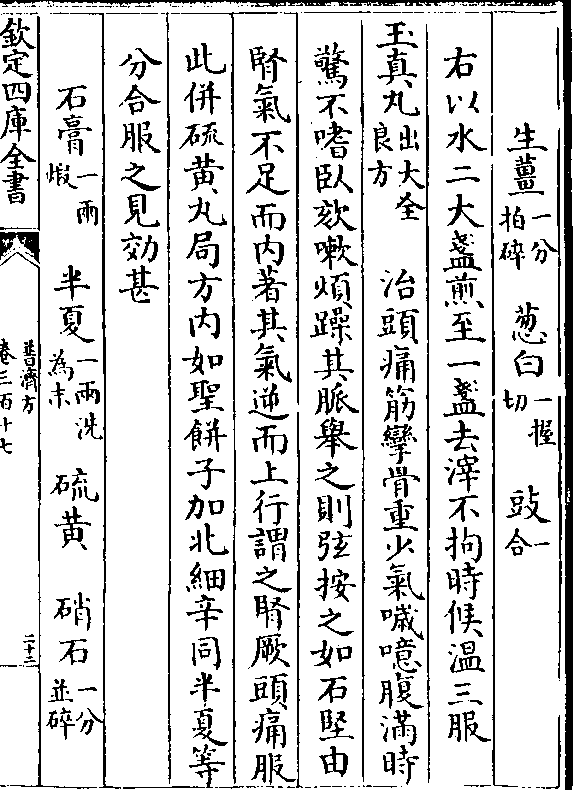 生薑一分拍碎 葱白一握切 豉一合
右以水二大盞煎至一盞去滓不拘時候温三服
玉真丸出大全良方 治頭痛筋攣骨重少氣噦噫腹滿時
驚不嗜臥欬嗽煩躁其脈舉之則弦按之如石堅由
腎氣不足而内著其氣逆而上行謂之腎厥頭痛服
此併硫黄丸局方内如聖餅子加北細辛同半夏等
分合服之見効甚
石膏一兩煅 半夏一兩洗為末 硫黄 硝石一分並碎
欽定四庫全書
普濟方
卷三百十七
二十三